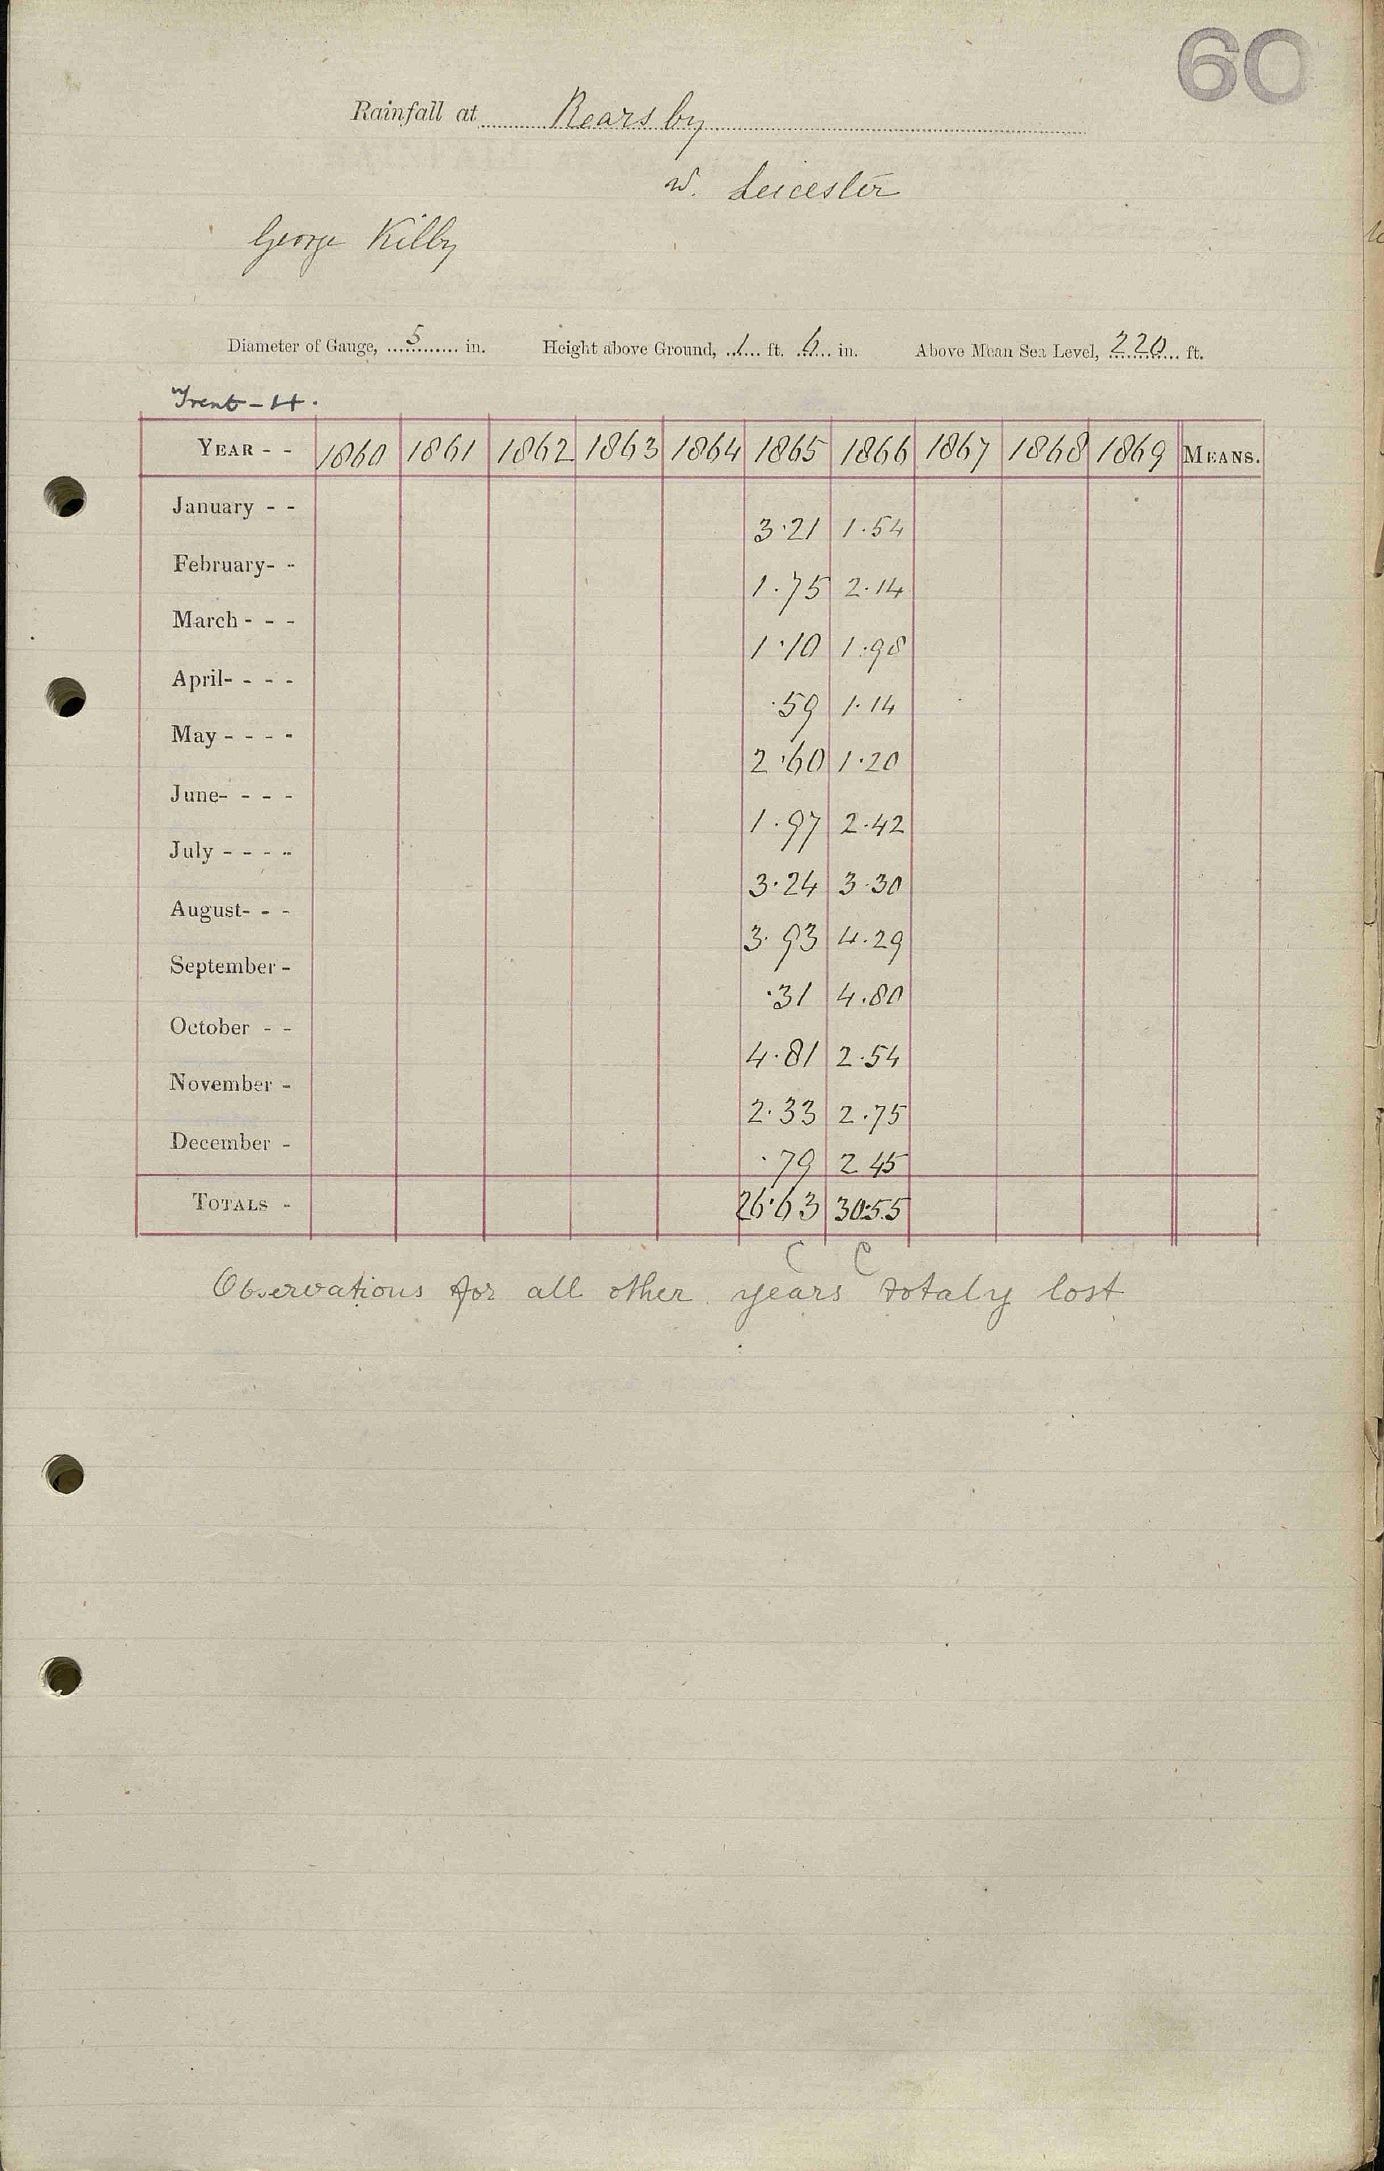 60
Rainfall at Rearsby
nr. Leicester
George Kilby
Diameter of Gauge, 5 in. Height above Ground, 1 ft. 6 in. Above Mean Sea Level, 220 ft.
Trent - H.
YEAR - - 1860 1861 1862 1863 1864 1865 1866 1867 1868 1869 MEANS.
January - - 3.21 1.54
February - - 1.75 2.14
March - - - 1.10 1.98
April - - - - .59 1.14
May - - - - 2.60 1.20
June - - - - 1.97 2.42
July - - - - 3.24 3.30
August - - - 3.93 4.29
September - .31 4.80
October - - 4.81 2.54
November - 2.33 2.75
December - .79 2 45
TOTALS - 26.63 30.55
C C
Observations for all other years totaly lost